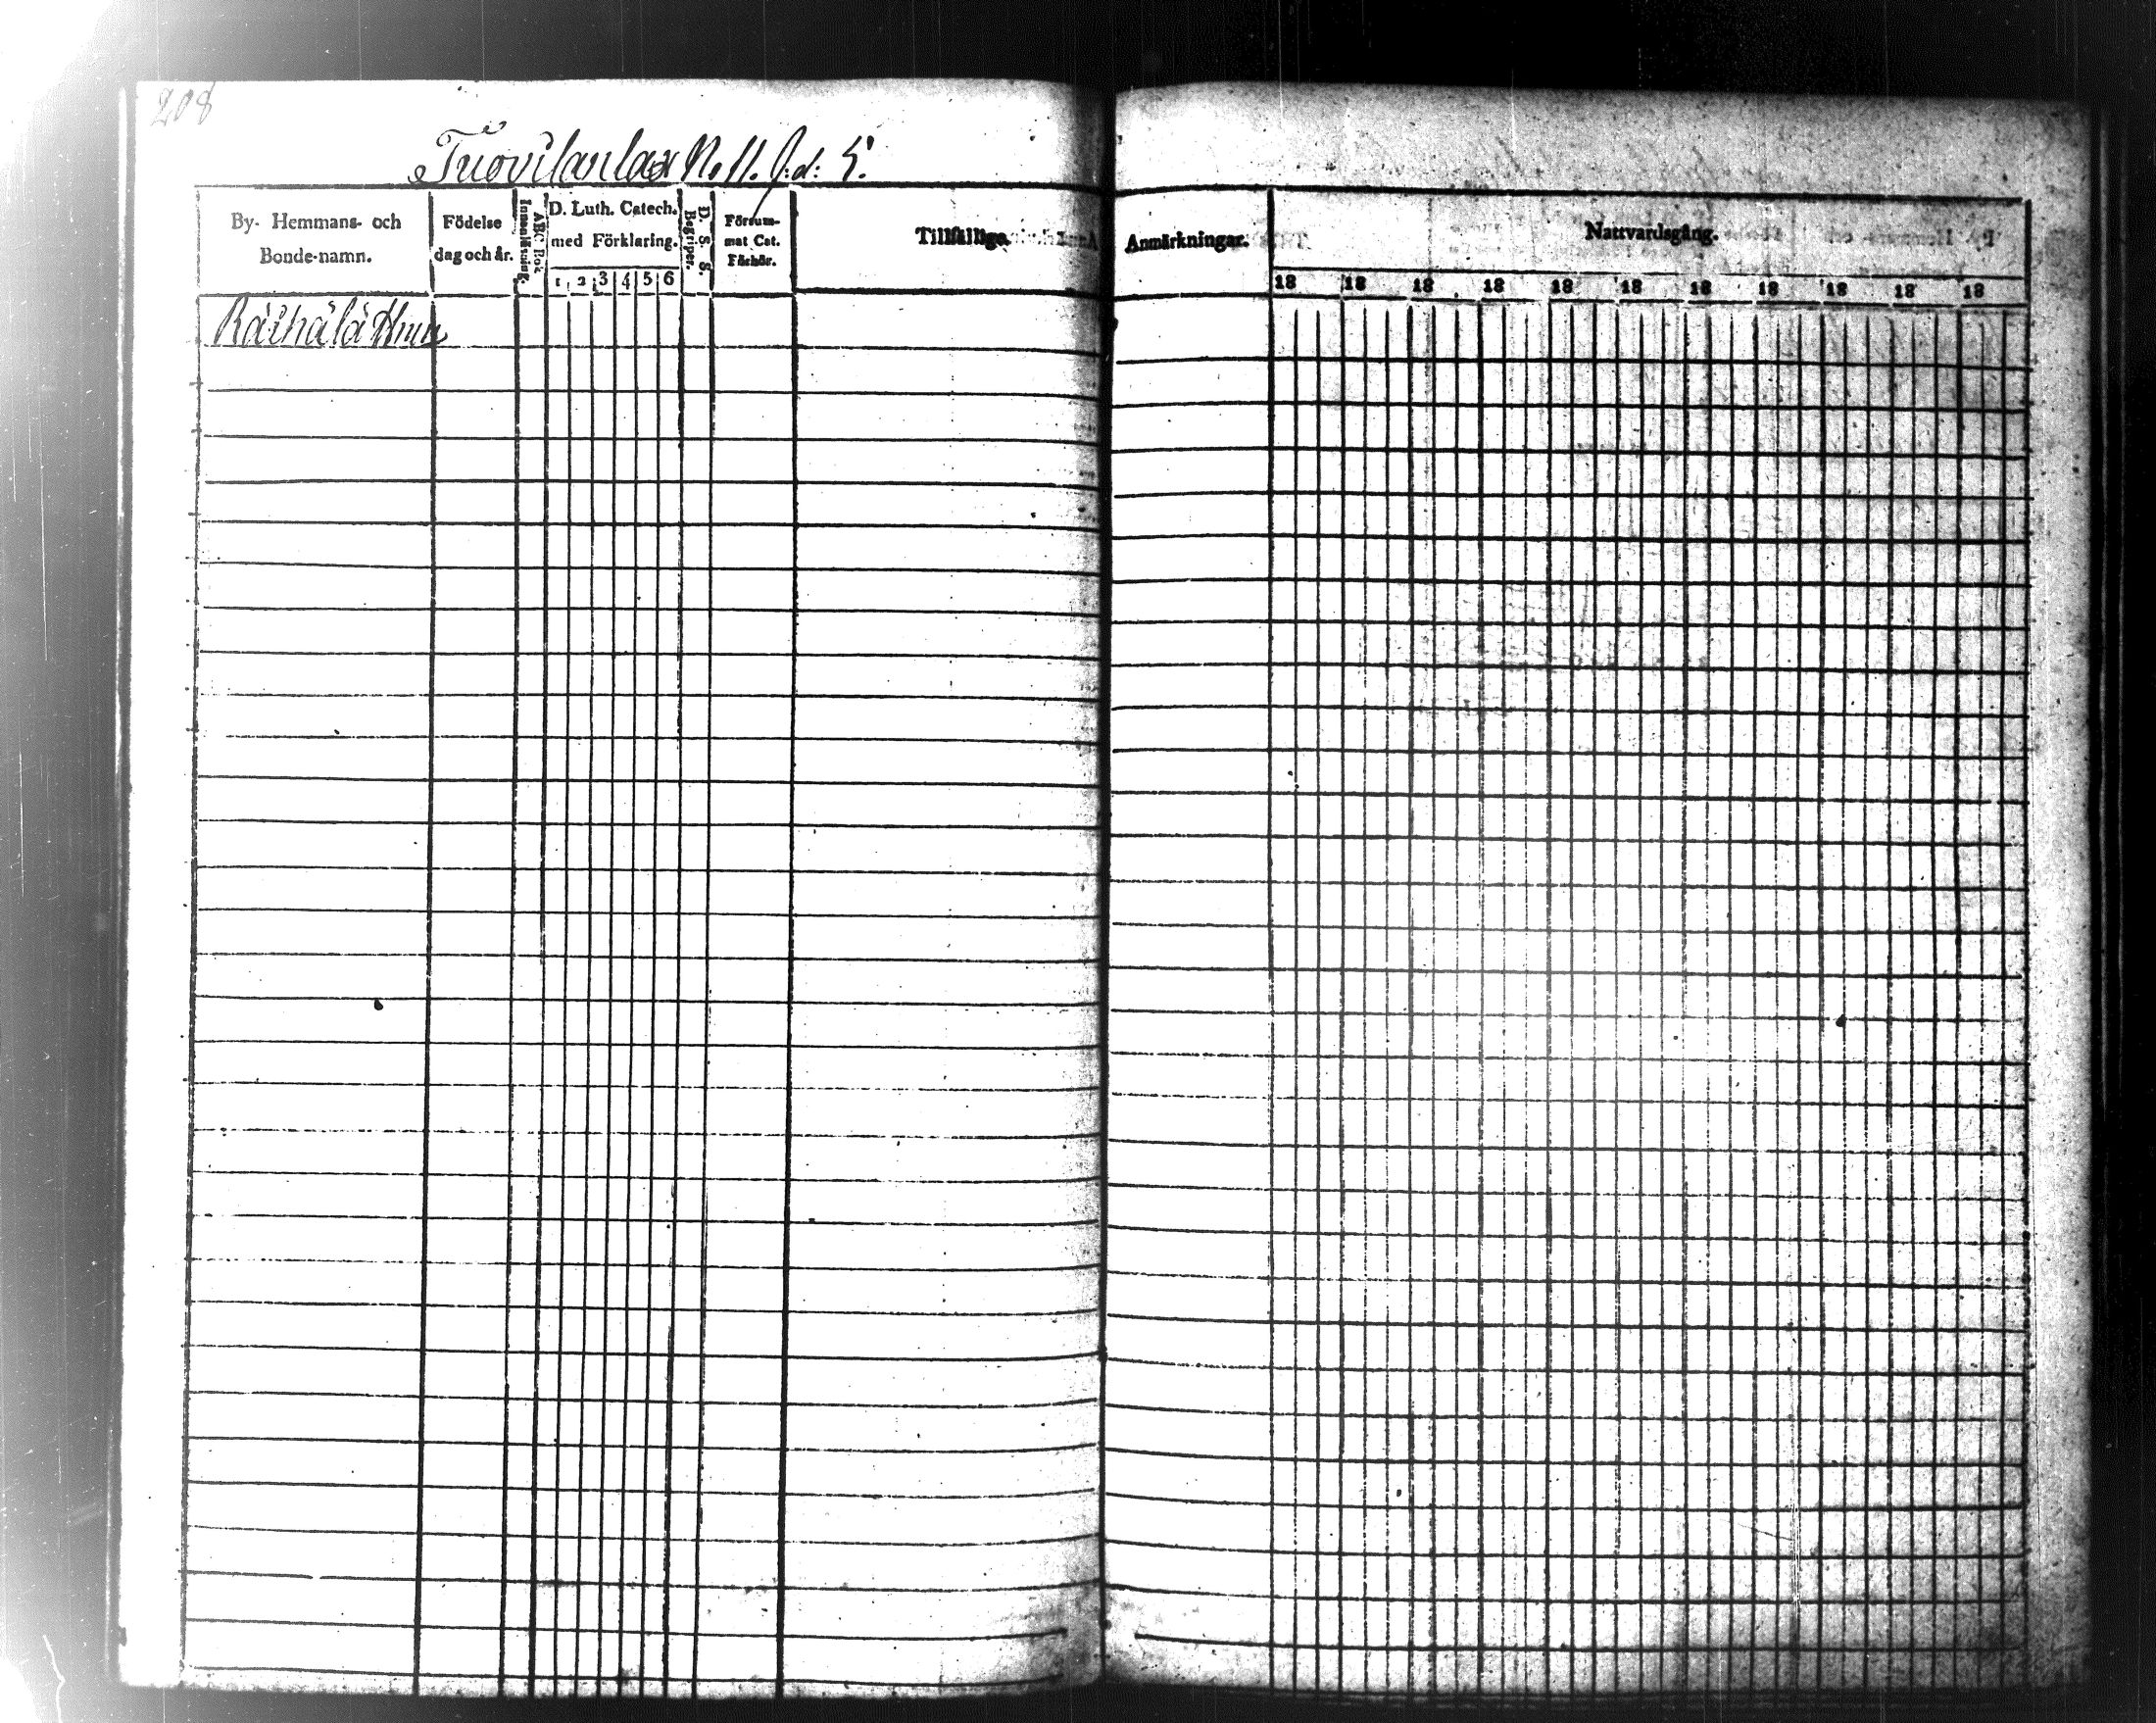 208
Tuovilanlax No 11. J:d: 5.
By- Hemmans- och Bonde-namn.
Födelse dag och år.
Innanläsning.
ABC Bok
D. Luth. Catech. med Förklaring.
1 2 3 4 5 6
D. S. S. Begriper.
Försum- mat Cat. Förhör.
Tillfällige
Anmärkningar.
Nattvardsgång.
18 18 18 18 18 18 18 18 18 18 18
Räihälä